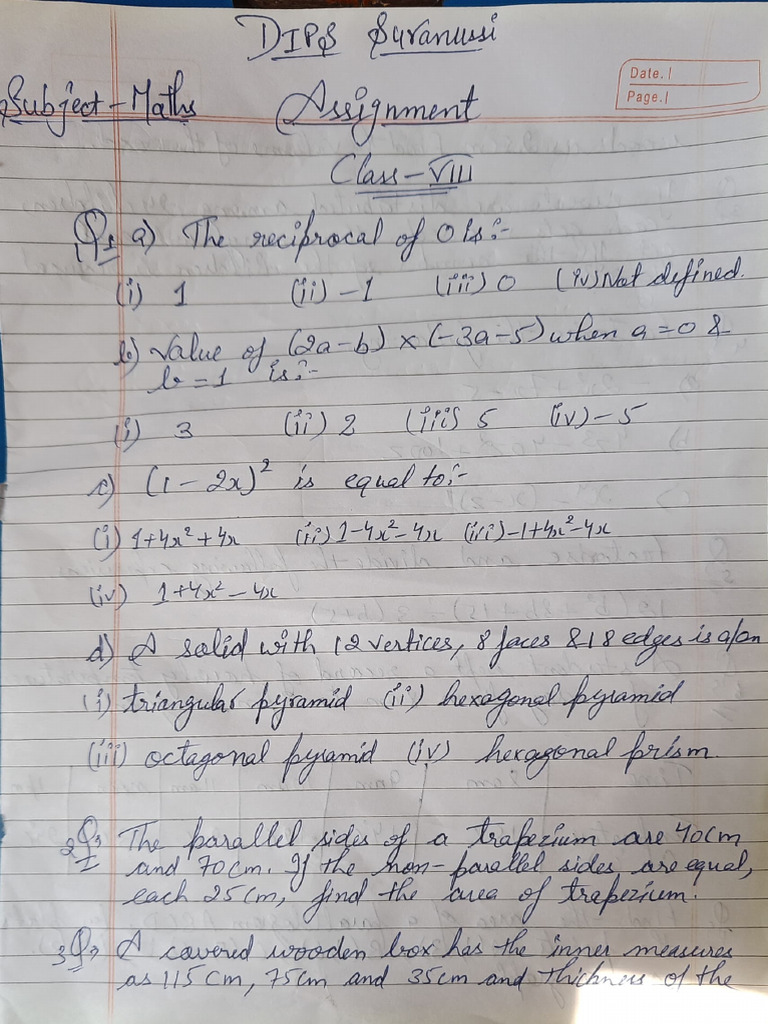 DIPS Suranussi
Date.
Page.
Subject - Maths Assignment
Class - VIII
Q1 a) The reciprocal of 0 is:-
(i) 1 (ii) -1 (iii) 0 (iv) Not defined.
b) Value of (2a-b) × (-3a-5) when a = 0 &
b = 1 is:-
(i) 3 (ii) 2 (iii) 5 (iv) -5
c) (1-2x)² is equal to:-
(i) 1+4x²+4x (ii) 1-4x²-4x (iii) -1+4x²-4x
(iv) 1+4x²-4x
d) A solid with 12 vertices, 8 faces & 18 edges is a/an
(i) triangular pyramid (ii) hexagonal pyramid
(iii) octagonal pyramid (iv) hexagonal prism.
2Q: The parallel sides of a trapezium are 40cm
and 70cm. If the non-parallel sides are equal,
each 25cm, find the area of trapezium.
3Q: A covered wooden box has the inner measures
as 115cm, 75cm and 35cm and thickness of the